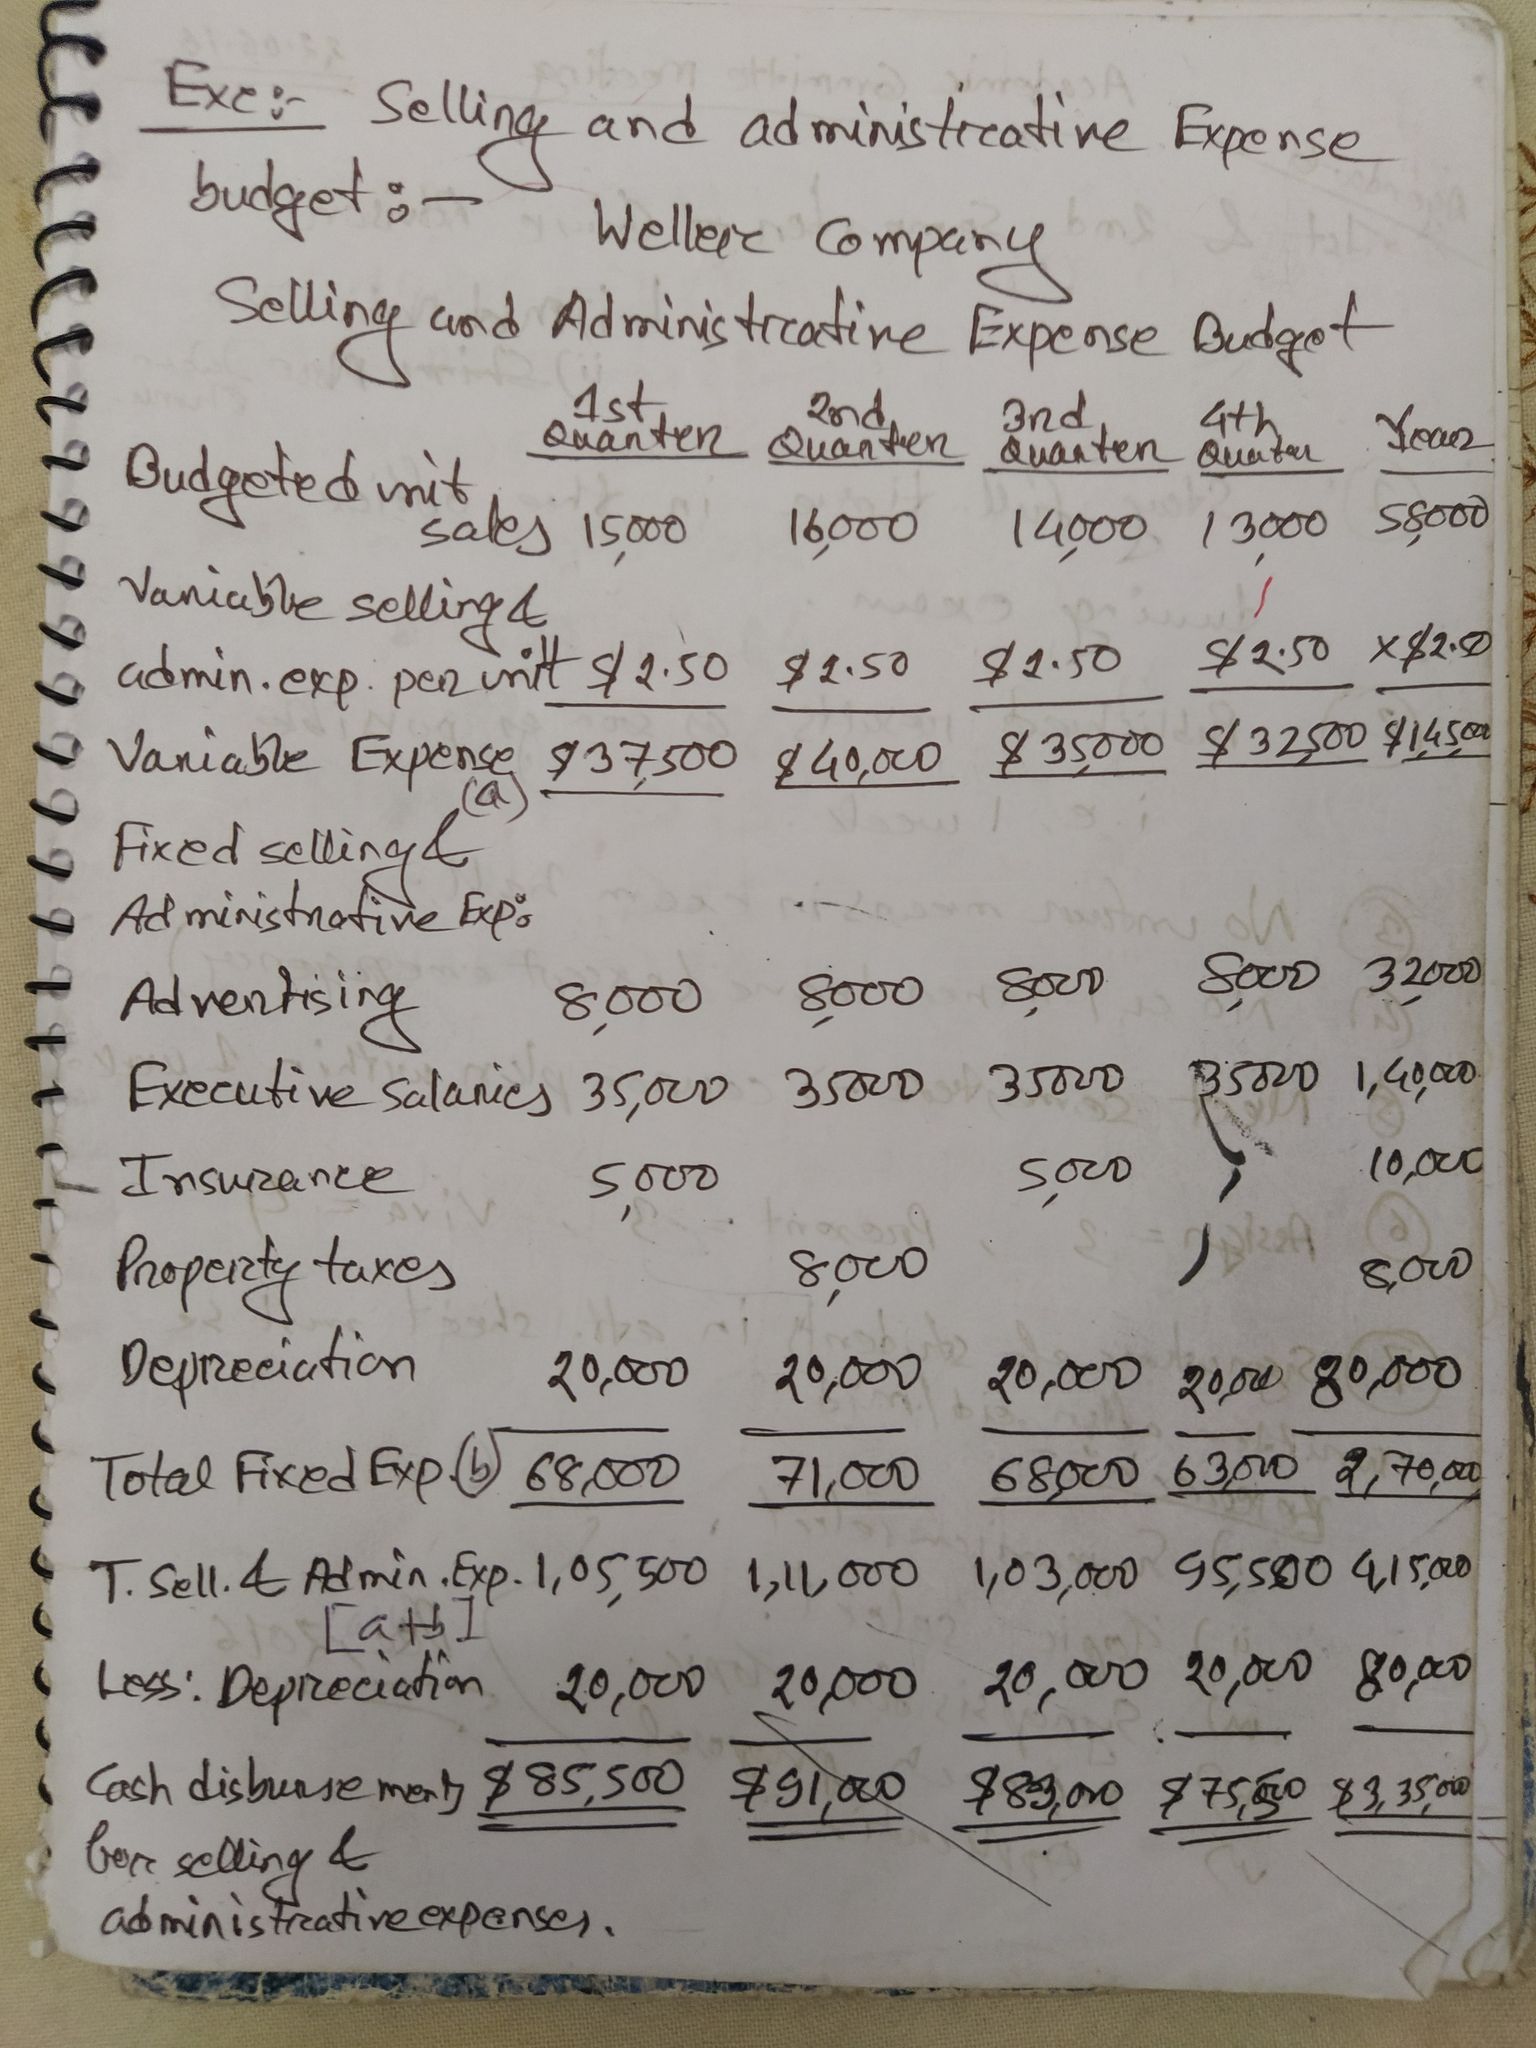 Exc:- Selling and administrative Expense
budget :-
Weller Company
Selling and Administrative Expense Budget
1st Quarter 2nd Quarter 3rd Quarter 4th Quarter Year
Budgeted unit
sales 15,000 16,000 14,000 13,000 58,000
Variable selling &
admin. exp. per unit $2.50 $2.50 $2.50 $2.50 x$2.50
Variable Expense $37,500 $40,000 $35,000 $32,500 $1,45,000
(a)
Fixed selling &
Administrative Exp:
Advertising 8,000 8,000 8,000 8,000 32,000
Executive Salaries 35,000 35000 35000 35000 1,40,000
Insurance 5,000 5,000 10,000
Property taxes 8,000 8,000
Depreciation 20,000 20,000 20,000 20,000 80,000
Total Fixed Exp. (b) 68,000 71,000 68,000 63,000 2,70,000
T. Sell. & Admin. Exp. 1,05,500 1,11,000 1,03,000 95,500 4,15,000
[a+b]
Less: Depreciation 20,000 20,000 20,000 20,000 80,000
Cash disbursements $85,500 $91,000 $83,000 $75,500 $3,35,000
for selling &
administrative expenses.